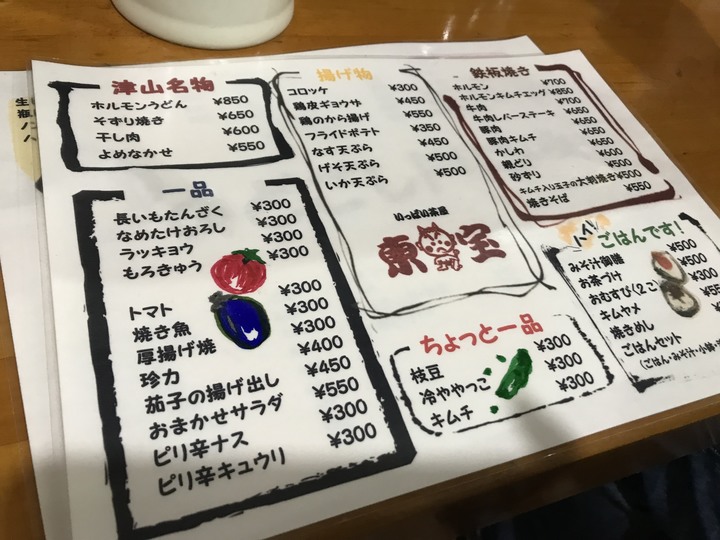 津山名物
ホルモンうどん ¥850
そずり焼き ¥650
干し肉 ¥600
よめなかせ ¥550
一品
長いもたんざく ¥300
なめたけおろし ¥300
ラッキョウ ¥300
もろきゅう ¥300
トマト ¥300
焼き魚 ¥300
厚揚げ焼 ¥300
珍カ ¥400
茄子の揚げ出し ¥450
おまかせサラダ ¥550
ピリ辛ナス ¥300
ピリ辛キュウリ ¥300
揚げ物
コロッケ ¥300
鶏皮ギョウサ ¥450
鶏のから揚げ ¥550
フライドポテト ¥350
なす天ぷら ¥450
げそ天ぷら ¥500
いか天ぷら ¥500
いっぱい茶屋
東宝
ちょっと一品
枝豆 ¥300
冷ややっこ ¥300
キムチ ¥300
鉄板焼き
ホルモン ¥700
ホルモンキムチエッグ ¥850
牛肉 ¥700
牛肉レバーステーキ ¥650
豚肉 ¥650
豚肉キムチ ¥650
かしわ ¥650
親どり ¥600
砂ずり ¥500
キムチ入り玉子のお好焼き ¥650
焼きそば ¥550
ハイ!
ごはんです!
みそ汁御膳 ¥500
お茶づけ ¥500
おむすび(2こ) ¥300
キムヤメ
焼きめし
ごはんセット
(ごはん・みそ汁・小鉢・